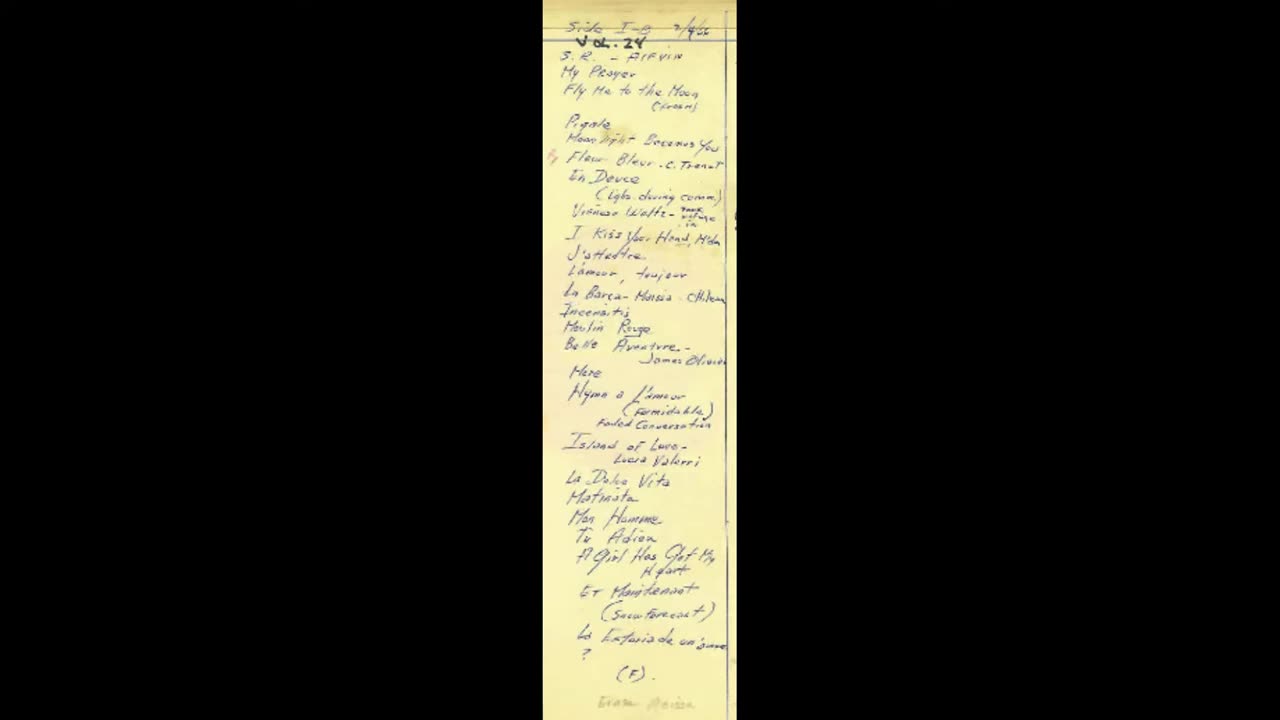 Side I-B 2/4/66
VOL. 24
S.R. - Alfvin
My Prayer
Fly Me to the Moon
Pigale
Moonlight Becomes You
Fleur Bleur - C. Trenet
En Douce
(Light during comm.)
Vienean Waltz - 
I Kiss Your Hand, M'dm
J'attedre
L'amour, toujour
La Barca -
Incensitis
Moulin Rouge
Belle Aventure -
James
Mere
Hymn a L'amour
(Formidable)
Foiled Conversation
Island of Love -
La Dolce Vita
Matinata
Mon Homme
Tu
A Girl Has Got My
Heart
Et Maintenant
(Snow Forecast)
La de un
?
(F).